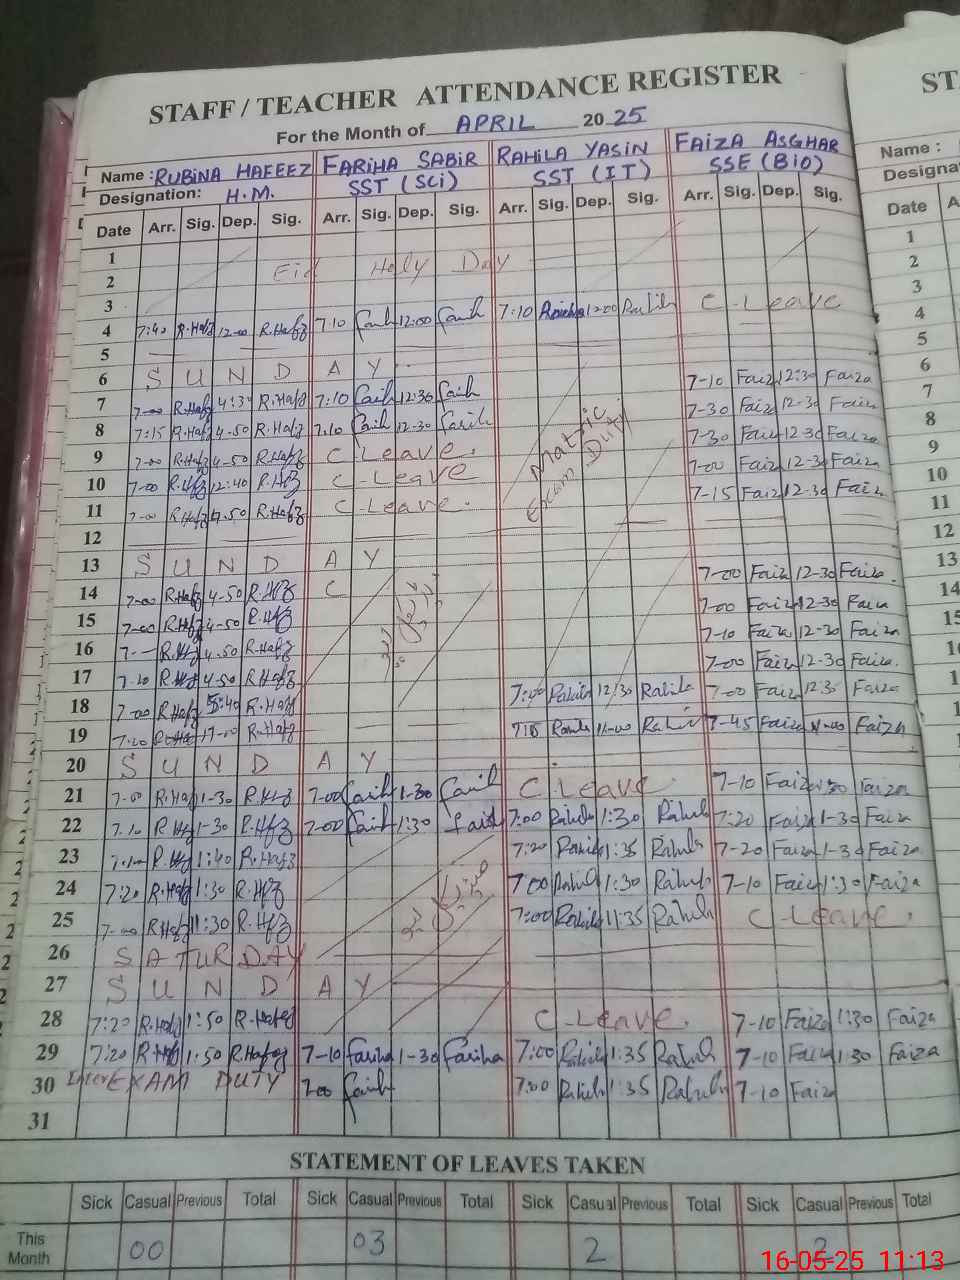 STAFF / TEACHER ATTENDANCE REGISTER
For the Month of APRIL 20 25
Name : RUBINA HAFEEZ FARIHA SABIR RAHILA YASIN FAIZA ASGHAR
Designation: H.M. SST (SCi) SST (IT) SSE (BiO)
Date Arr. Sig. Dep. Sig. Arr. Sig. Dep. Sig. Arr. Sig. Dep. Sig. Arr. Sig. Dep. Sig.
1
2 Eid Holy Day
3 C-Leave
4 7:40 R.Hafz 12-00 R.Hafz 7:10 Farih 12:00 Farih 7:10 Rahila 12:00 Rahila
5
6 S U N D A Y
7 7-00 R.Hafz 4:30 R.Hafz 7:10 Farih 12:30 Farih 7-10 Faiza 12:30 Faiza
8 7:15 R.Hafz 4-50 R.Hafz 7:10 Farih 12-30 Farih 7-30 Faiza 12-30 Faiza
9 7-00 R.Hafz 4-50 R.Hafz C Leave. Matric Exam Duty 7-30 Faiza 12-30 Faiza
10 7-00 R.Hfz 12:40 R.Hfz C-Leave 7-00 Faiza 12-30 Faiza
11 7-00 R.Hafz R.Hafz C-Leave. 7-15 Faiza 12-30 Faiza
12
13 S U N D A Y
14 7-00 R.Hafz 4-50 R.Hfz C 7-00 Faiza 12-30 Faiza.
15 7-00 R.Hfz 4-50 R.Hfz 7-00 Faiza 12-30 Faiza
16 R.Hfz 4.50 R.Hafz 7-10 Faiza 12-30 Faiza
17 7-20 R.Hfz 4-50 R.Hafz 7-00 Faiza 12-30 Faiza.
18 7-00 R.Hafz 5:40 R.Hafz 7:00 Rahila 12/30 Rahila 7-00 Faiza 12:30 Faiza
19 7:20 R.Hafz R.Hafz 7:15 Rahila 11-00 Rahila 7-45 Faiza 11-00 Faiza
20 S U N D A Y
21 7-00 R.Haf 1-30 R.Hfz 7-00 Farih 1-30 Farih C Leave. 7-10 Faiza 1:30 Faiza
22 7.10 R.Hfz 1-30 R.Hfz 7-00 Farih 1:30 Farih 7:00 Rahila 1:30 Rahila 7:20 Faiza 1-30 Faiza
23 R.Hfz 1:40 R.Hafz 7:20 Rahila 1:35 Rahila 7-20 Faiza 1-30 Faiza
24 7:20 R.Hafz 1:30 R.Hfz 7:00 Rahila 1:30 Rahila 7-10 Faiza 1:30 Faiza
25 7-00 R.Hafz 11:30 R.Hfz 7:00 Rahila 11:35 Rahila C Leave.
26 S A T U R D A Y
27 S U N D A Y
28 7:20 R.Hafz 1:50 R.Hafez C-Leave. 7-10 Faiza 1:30 Faiza
29 7:20 R.Hfz 1:50 R.Hafez 7-10 Fariha 1-30 Fariha 7:00 Rahila 1:35 Rahila 7-10 Faiza 1:30 Faiza
30 Inter EXAM DUTY 7:00 Farih 7:00 Rahila 1:35 Rahila 7-10 Faiza
31
STATEMENT OF LEAVES TAKEN
Sick Casual Previous Total Sick Casual Previous Total Sick Casual Previous Total Sick Casual Previous Total
This Month 00 03 2 2
16-05-25 11:13